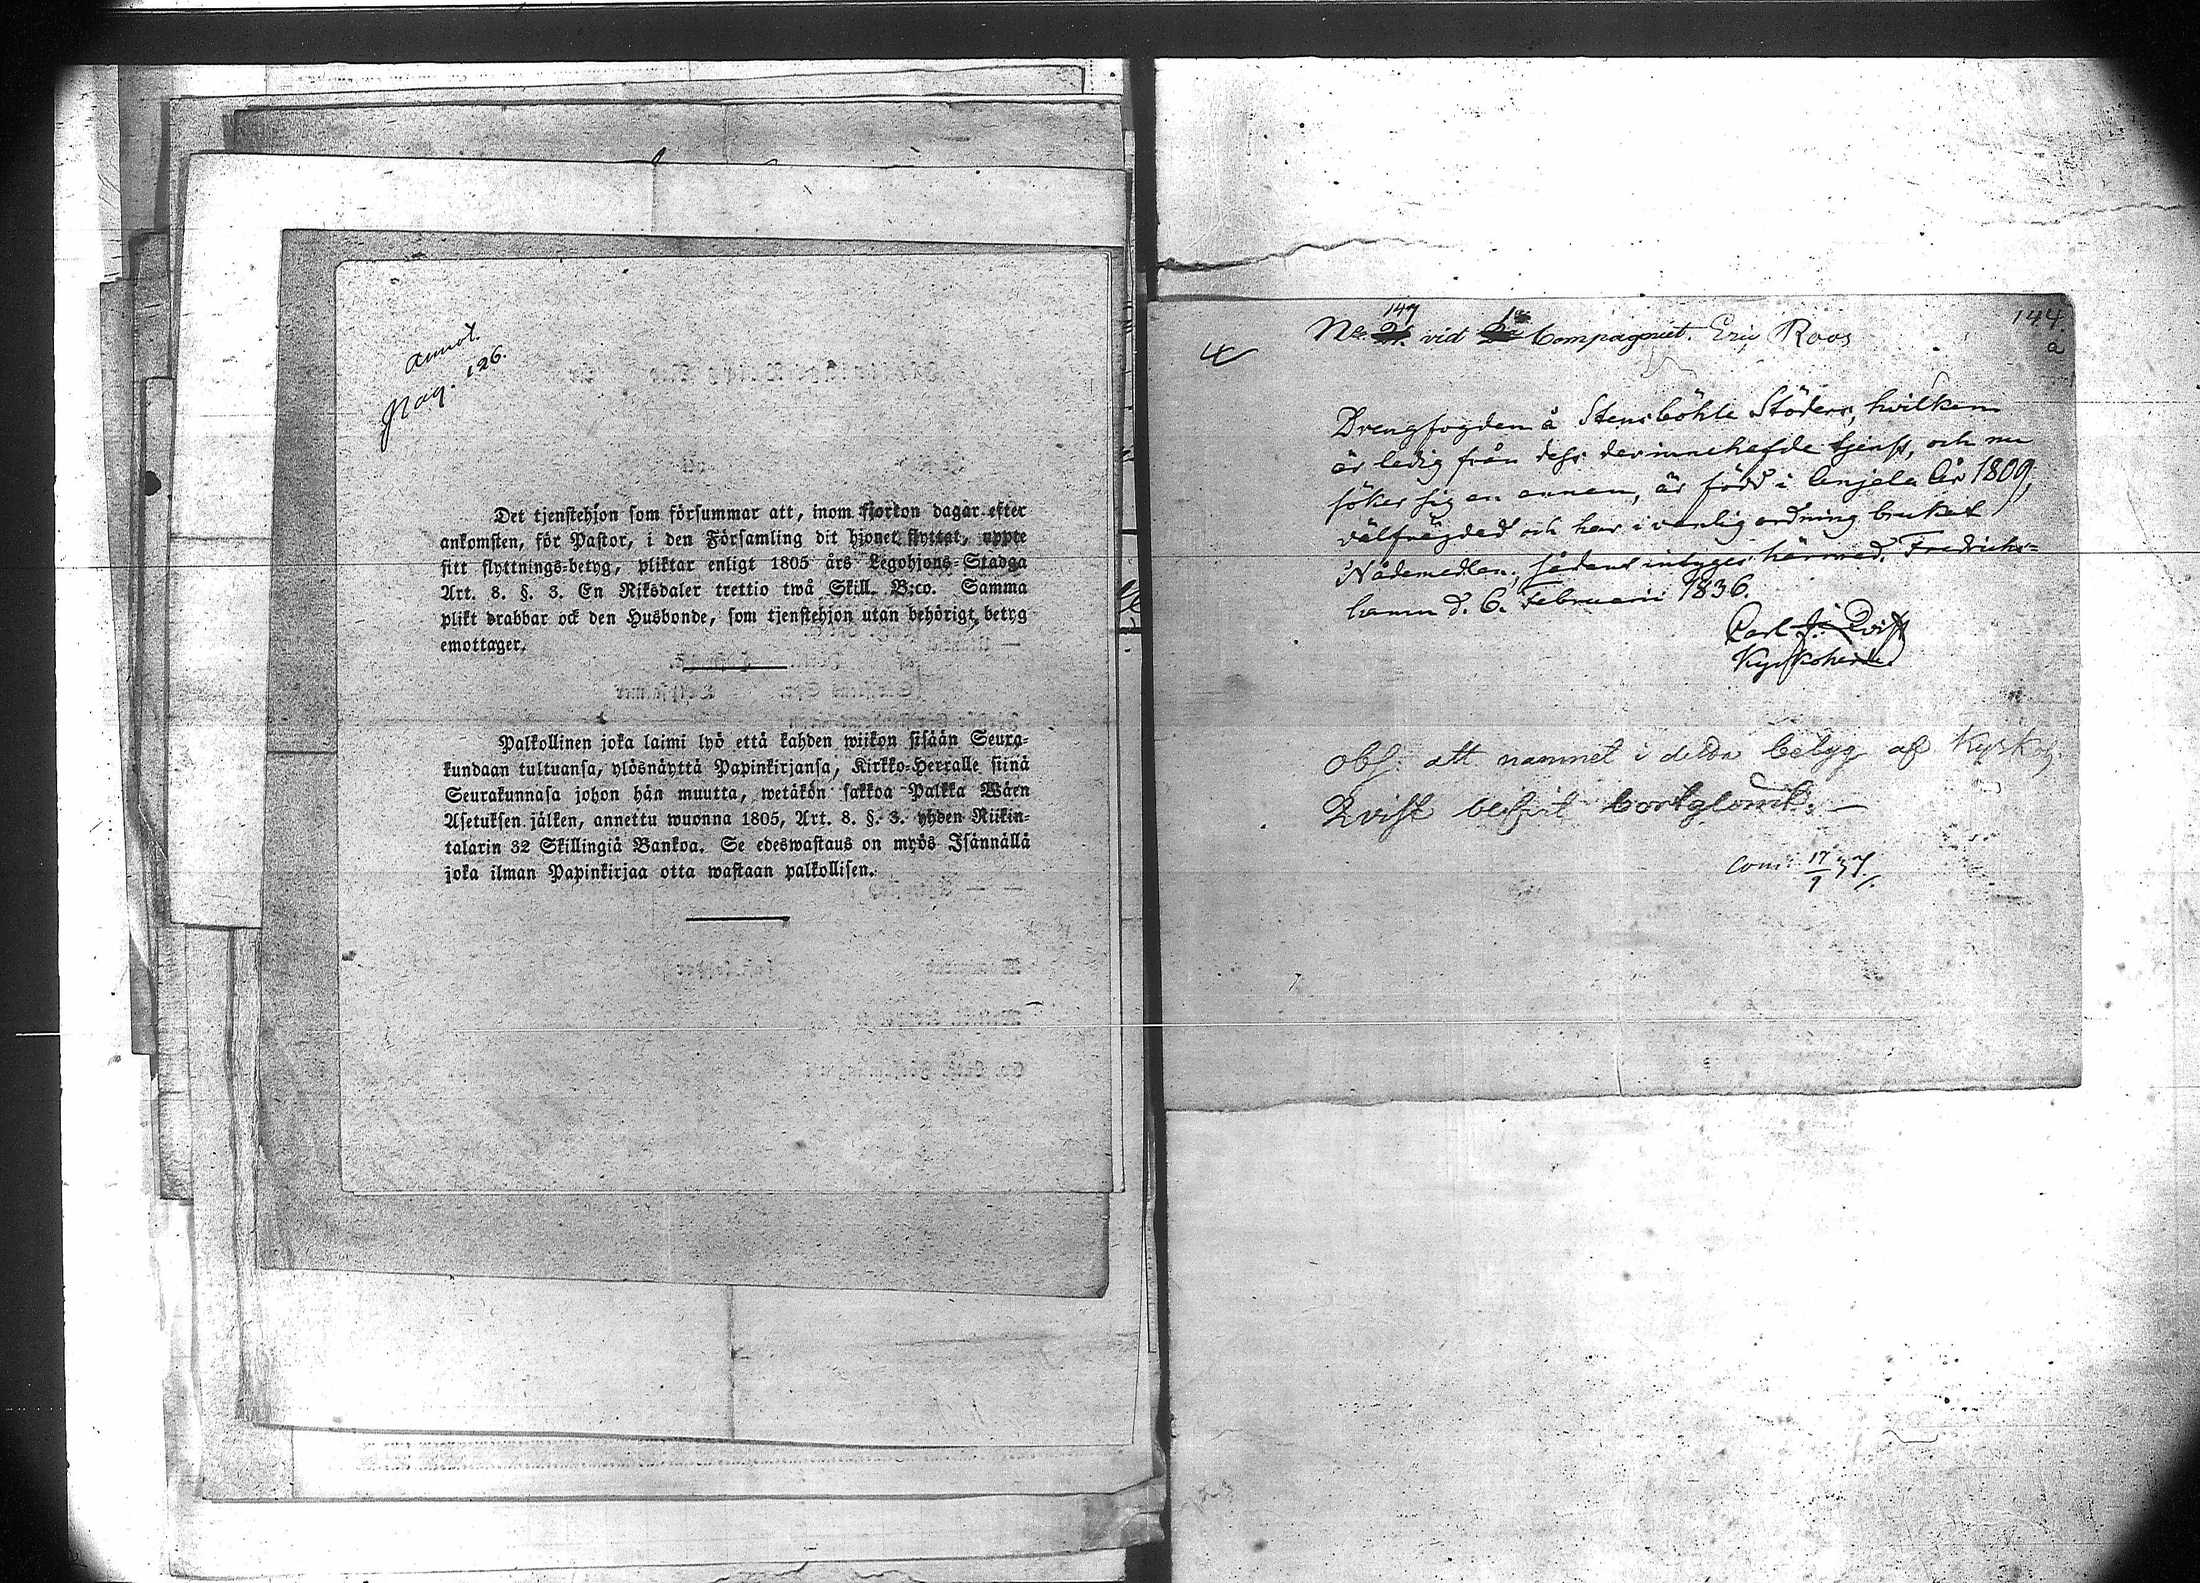 annot.
pag. 126.
Det tjenstehjon som försummar att, inom fjorton dagar efter
ankomsten, för Pastor, i den Församling dit hjonet flyttat, uppte
sitt flyttnings-betyg, pliktar enligt 1805 års Legohjons-Stadga
Art. 8. §. 3. En Riksdaler trettio twå Skill. B:co. Samma
plikt drabbar ock den Husbonde, som tjenstehjon utan behörigt betyg
emottager.
Palkollinen joka laimi lyö että kahden wiikon sisään Seura-
kundaan tultuansa, ylösnäyttä Papinkirjansa, Kirkko-Herralle siinä
Seurakunnasa johon hän muutta, wetäkön sakkoa Palkka Wäen
Asetuksen jälken, annettu wuonna 1805, Art. 8. §. 3. yhden Riikin-
talarin 32 Skillingiä Bankoa. Se edeswastaus on myös Isännällä
joka ilman Papinkirjaa otta wastaan palkollisen.
144.
a
147 1a
No. vid Compagniet. Eric Roos
Drengfogden å Stensböhle Söder, hvilken
är ledig från dess derinnehafde tjenst, och nu
söker sig en annan, är född i Anjala År 1809,
välfrägdad och har i vanlig ordning brukat
Nådemedlen; sådant intygas härmed. Fredrichs-
hamn d. 6. Februarii 1836.
Carl J. Qvist
Kyrkoherde
obs. att namnet i detta betyg af Kyrkoh.
Qvist blifvit bortglömt. —
Com. 17/9 37.